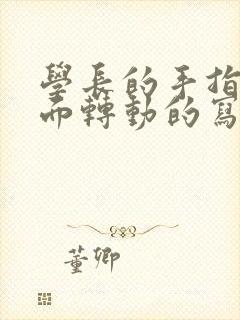 學長的手指
而轉動的寫
董卿